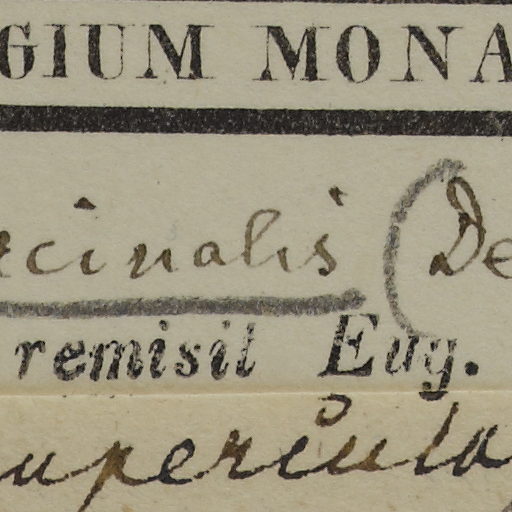 GIUM MONA
cinalis (De
remisit Eug.